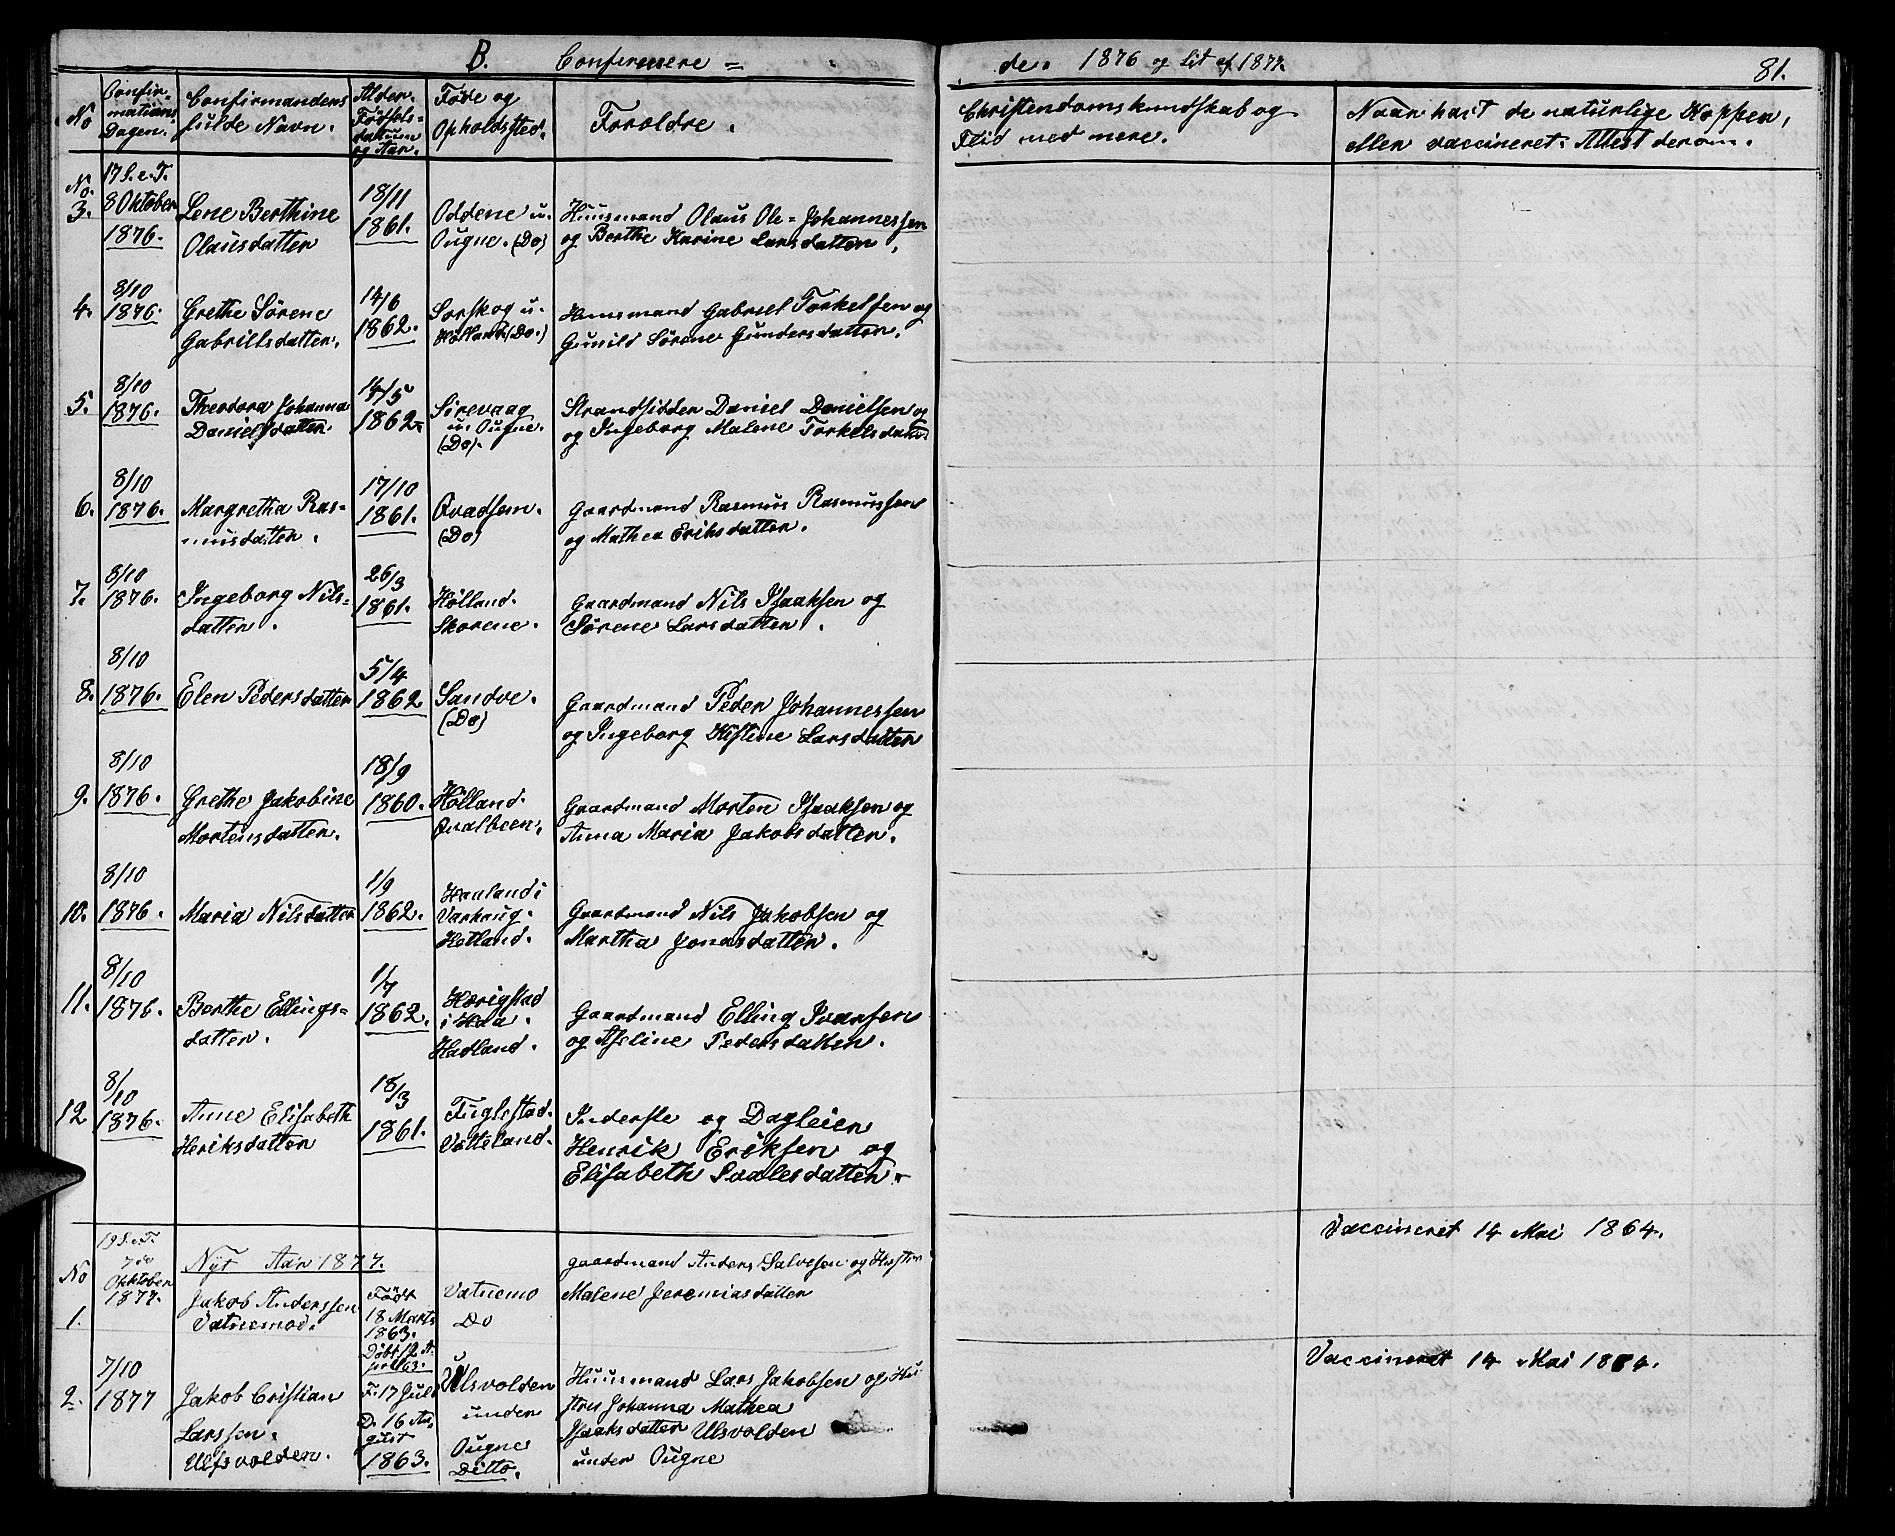 B. Confirmere=
de. 1876 og Lit af 1877. 81.
No
Confir-
mations
Dagen.
Confirmandens
fulde Navn.
Alder.
Fødsels=
datum
og Aar.
Føde og
Opholdsted.
Foroldre.
Christendomskundskab og
Flid med mere.
Naar havt de naturlige Kopper,
eller vaccineret. Attest derom.
No.
3.
17 S. e. T.
8 Oktober
1876.
Lene Berthine
Olausdatter
18/11
1861.
Oddene u.
Ougne. (Do)
Huusmand Olaus Ole= Johannessen
og Berthe Karine Larsdatter,
4.
8/10
1876.
Grethe Sørene
Gabrielsdatter.
14/6
1862.
Sorskog u.
Hølland (Do.)
Huusmand Gabriel Torkelsen og
Gunild Sørene Gundersdatter.
5.
8/10
1876.
Theodora Johanna
Danielsdatter.
14/5
1862.
Sirevaag
u. Ougne.
(Do).
Strandsidder Daniel Danielsen og
og Ingeborg Malene Torkelsdatter
6.
8/10
1876.
Margretha Ras=
musdatter.
17/10
1861.
Qvadsem.
(Do)
Gaardmand Rasmus Rasmussen
og Mathea Eriksdatter.
7.
8/10
1876.
Ingeborg Nils=
datter.
26/3
1861.
Hølland.
Skorene.
Gaardmand Nils Isaaksen og
Sørene Larsdatter.
8.
8/10
1876.
Elen Pedersdatter
5/4
1862.
Sandve.
(Do)
Gaardmand Peder Johannessen
og Ingeborg Kistine Larsdatter
9.
8/10
1876.
Grethe Jakobine
Mortensdatter.
18/9
1860.
Hølland.
Qvalbeen.
Gaardmand Morten Isaaksen og
Anna Maria Jakobsdatter.
10.
8/10
1876.
Maria Nilsdatter
1/9
1862.
Haaland i
Varhaug.
Hetland.
Gaardmand Nils Jakobsen og
Martha Jonasdatter.
11.
8/10
1876.
Berthe Ellings=
datter.
1/7
1862.
Hærigstad
i Haa.
Hadland.
Gaardmand Elling Ivarsen
og Aseline Pedersdatter.
12
8/10
1876.
Anne Elisabeth
Heriksdatter
18/3
1861.
Fuglestad.
Vatteland.
Inderste og Dagleier
Henrik Eriksen og
Elisabeth Svalesdatter.
No
19 S. e. T.
7de
Oktober
1877.
Nyt Aar 1877.
Vaccineret 14 Mai 1864.
1.
Jakob Anderssen
Vatnemod.
Født
18 Marts
1863.
Døbt 12 A-
pril 63.
Vatnemo
Do
gaardmand Anders Salvesen og Hustru
Malene Jeremiasdatter
2.
7/10
1877
Jakob Cristian
Larssen.
Ulfsvolden.
F. 17 Juli
D. 16 Au-
gust
1863.
Ulsvolden
under
Ougne
Ditto.
Huusmand Lars Jakobsen og Hu
strus Johanna Mathea
Isaaksdatter Ulsvolden
under Ougne
Vaccineret 14 Mai 1864.